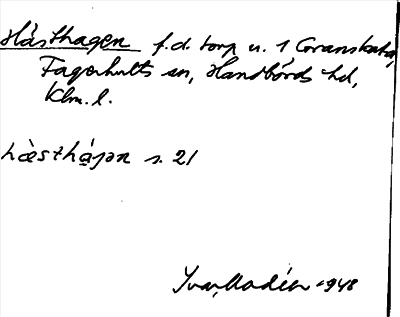 Hästhagen f.d. torp u. 1 Granskata,
Fagerhults sn, Handbörds hd,
Klm. l.
hàsthájən s. 21
Ivar Modéer 1948